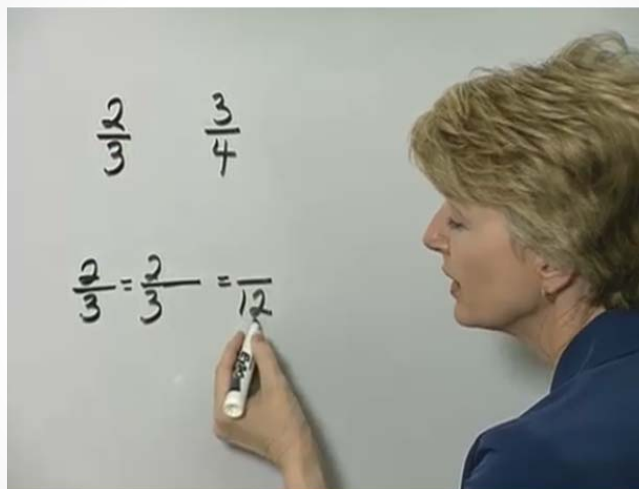 2/3 3/4
2/3 = 2/3 = /12